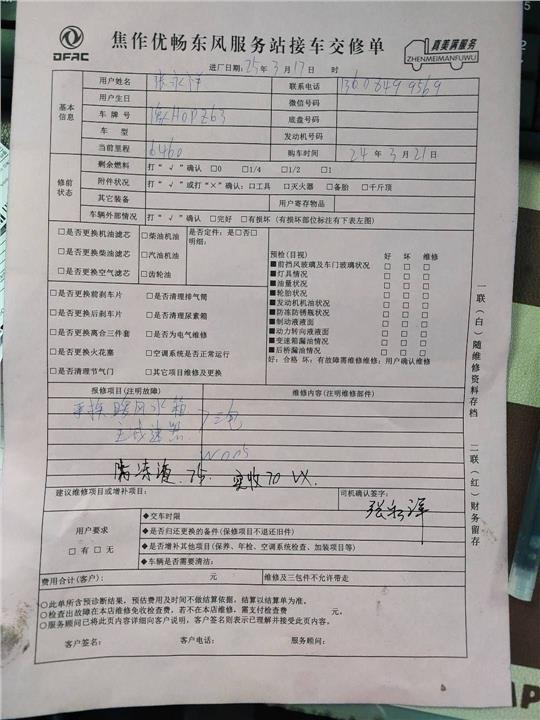 DFAC
焦作优畅东风服务站接车交修单
真美满服务
ZHENMEIMANFUWU
进厂日期：25年3月17日 时
基本信息
用户姓名 张永洋 联系电话
用户生日 微信号码
车牌号 底盘号码
车型 发动机号码
当前里程 6460 购车时间 24年3月21日
修前状态
剩余燃料 打“√”确认 □0 □1/4 □1/2 □1
附件状况 打“√”或打“×”确认：□工具 □灭火器 □备胎 □千斤顶
其它装备 用户寄存物品
车辆外部情况 打“√”确认 □完好 □有损坏（有损坏部位标注有下表左图）
□是否更换机油滤芯 □柴油机油 是否定件：是□否□
明细：
□是否更换柴油滤芯 □汽油机油
□是否更换空气滤芯 □齿轮油
预检（目视） 好 坏 维修
■前挡风玻璃及车门玻璃状况 □ □ □
■灯具情况 □ □ □
■油量状况 □ □ □
■轮胎状况 □ □ □
■发动机机油状况 □ □ □
■防冻防锈瓶状况 □ □ □
■制动液液面 □ □ □
■动力转向液液面 □ □ □
■变速箱漏油情况 □ □ □
■后桥漏油情况 □ □ □
好：合格 坏：有故障需维修维修：用户确认维修
□是否更换前刹车片 □是否清理排气筒
□是否更换后刹车片 □是否清理尿素箱
□是否更换离合三件套 □是否为电气维修
□是否更换火花塞 □空调系统是否正常运行
□是否清理节气门 □其它项目维修及更换
报修项目（注明故障） 维修内容（注明维修部件）
更换暖风水箱 三包
主减速器
W005
防冻液 75 实收70 VX.
建议维修项目或增补项目： 司机确认签字：
张永洋
用户要求
□有□无
◆交车时限
◆是否归还更换的备件（保修项目不退还旧件）
◆是否增补其他项目（保养、年检、空调系统检查、加装项目等）
◆车辆是否需要清洁：
费用合计（客户）： 元 维修及三包件不允许带走
○此单所含预诊断结果，预估费用及时间不做结算依据，结算以结算单为准。
○检查出故障在本店维修免收检查费，若不在本店维修，需支付检查费 元。
○服务顾问已将此页内容详细向客户说明，客户签名则表示已理解并接受此页内容。
客户签名： 客户电话： 服务顾问：
一联（白）随维修资料存档 二联（红）财务留存